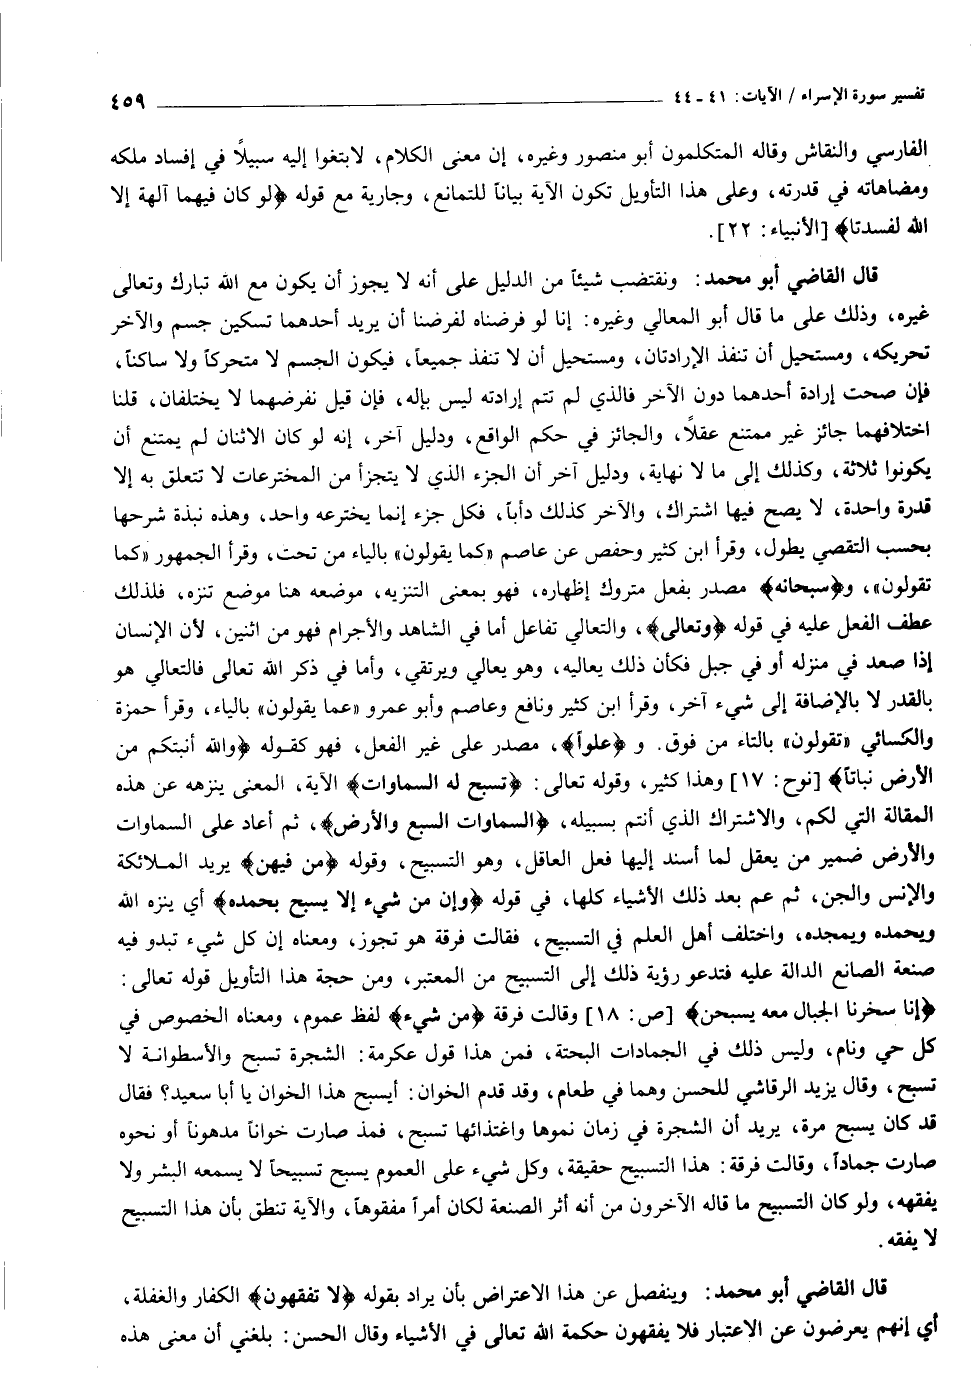 تفسير سورة الإسراء / الآيات: ٤١ - ٤٤ ٤٥٩
الفارسي والنقاش وقاله المتكلمون أبو منصور وغيره، إن معنى الكلام، لابتغوا إليه سبيلاً في إفساد ملكه
ومضاهاته في قدرته، وعلى هذا التأويل تكون الآية بياناً للتمانع، وجارية مع قوله ﴿لو كان فيهما آلهة إلا
الله لفسدتا﴾ [الأنبياء: ٢٢].
قال القاضي أبو محمد: ونقتضب شيئاً من الدليل على أنه لا يجوز أن يكون مع الله تبارك وتعالى
غيره، وذلك على ما قال أبو المعالي وغيره: إنا لو فرضناه لفرضنا أن يريد أحدهما تسكين جسم والآخر
تحريكه، ومستحيل أن تنفذ الإرادتان، ومستحيل أن لا تنفذ جميعاً، فيكون الجسم لا متحركاً ولا ساكناً،
فإن صحت إرادة أحدهما دون الآخر فالذي لم تتم إرادته ليس بإله، فإن قيل نفرضهما لا يختلفان، قلنا
اختلافهما جائز غير ممتنع عقلاً، والجائز في حكم الواقع، ودليل آخر، إنه لو كان الاثنان لم يمتنع أن
يكونوا ثلاثة، وكذلك إلى ما لا نهاية، ودليل آخر أن الجزء الذي لا يتجزأ من المخترعات لا تتعلق به إلا
قدرة واحدة، لا يصح فيها اشتراك، والآخر كذلك دأباً، فكل جزء إنما يخترعه واحد، وهذه نبذة شرحها
بحسب التقصي يطول، وقرأ ابن كثير وحفص عن عاصم «كما يقولون» بالياء من تحت، وقرأ الجمهور «كما
تقولون»، و﴿سبحانه﴾ مصدر بفعل متروك إظهاره، فهو بمعنى التنزيه، موضعه هنا موضع تنزه، فلذلك
عطف الفعل عليه في قوله ﴿وتعالى﴾، والتعالي تفاعل أما في الشاهد والأجرام فهو من اثنين، لأن الإنسان
إذا صعد في منزله أو في جبل فكأن ذلك يعاليه، وهو يعالي ويرتقي، وأما في ذكر الله تعالى فالتعالي هو
بالقدر لا بالإضافة إلى شيء آخر، وقرأ ابن كثير ونافع وعاصم وأبو عمرو «عما يقولون» بالياء، وقرأ حمزة
والكسائي «تقولون» بالتاء من فوق. و ﴿علواً﴾، مصدر على غير الفعل، فهو كقوله ﴿والله أنبتكم من
الأرض نباتاً﴾ [نوح: ١٧] وهذا كثير، وقوله تعالى: ﴿تسبح له السماوات﴾ الآية، المعنى ينزهه عن هذه
المقالة التي لكم، والاشتراك الذي أنتم بسبيله، ﴿السماوات السبع والأرض﴾، ثم أعاد على السماوات
والأرض ضمير من يعقل لما أسند إليها فعل العاقل، وهو التسبيح، وقوله ﴿من فيهن﴾ يريد الملائكة
والإنس والجن، ثم عم بعد ذلك الأشياء كلها، في قوله ﴿وإن من شيء إلا يسبح بحمده﴾ أي ينزه الله
ويحمده ويمجده، واختلف أهل العلم في التسبيح، فقالت فرقة هو تجوز، ومعناه إن كل شيء تبدو فيه
صنعة الصانع الدالة عليه فتدعو رؤية ذلك إلى التسبيح من المعتبر، ومن حجة هذا التأويل قوله تعالى:
﴿إنا سخرنا الجبال معه يسبحن﴾ [ص: ١٨] وقالت فرقة ﴿من شيء﴾ لفظ عموم، ومعناه الخصوص في
كل حي ونام، وليس ذلك في الجمادات البحتة، فمن هذا قول عكرمة: الشجرة تسبح والأسطوانة لا
تسبح، وقال يزيد الرقاشي للحسن وهما في طعام، وقد قدم الخوان: أيسبح هذا الخوان يا أبا سعيد؟ فقال
قد كان يسبح مرة، يريد أن الشجرة في زمان نموها واغتذائها تسبح، فمذ صارت خواناً مدهوناً أو نحوه
صارت جماداً، وقالت فرقة: هذا التسبيح حقيقة، وكل شيء على العموم يسبح تسبيحاً لا يسمعه البشر ولا
يفقهه، ولو كان التسبيح ما قاله الآخرون من أنه أثر الصنعة لكان أمراً مفقوهاً، والآية تنطق بأن هذا التسبيح
لا يفقه.
قال القاضي أبو محمد: وينفصل عن هذا الاعتراض بأن يراد بقوله ﴿لا تفقهون﴾ الكفار والغفلة،
أي إنهم يعرضون عن الاعتبار فلا يفقهون حكمة الله تعالى في الأشياء وقال الحسن: بلغني أن معنى هذه